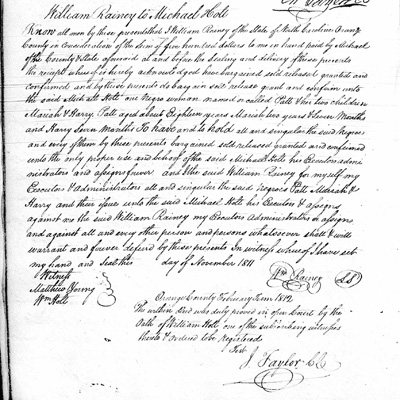 William Rainey to Michael Holt
Know all men by these presents that I William Rainey of the State of North Carolina Orange
County in Consideration of the sum of five hundred dollars to me in hand paid by Michael
of the County & State aforesaid at and before the sealing and delivery of these presents
the receipt whereof is hereby acknowledged have bargained sold released granted and
confirmed and by these presents do bargain sell release grant and confirm unto
the said Michael Holt one Negro woman named or called Patt & her two children
Mariah & Harry. Patt aged about Eighteen years Mariah two years & Seven Months
and Harry Seven Months To have and to hold all and singular the said negroes
and every of them by these presents bargained sold released granted and confirmed
unto the only proper use and behoof of the said Michael Holt his Executors admi-
nistrators and assigns forever and I the said William Rainey for myself my
Executors & administrators all and singular the said negroes Patt Mariah &
Harry and their issue unto the said Michael Holt his Executors & assigns
against me the said William Rainey my Executors Administrators or assigns
and against all and every other person and persons whatsoever shall & will
warrant and forever defend by these presents In witness whereof I have set
my hand and Seal this day of November 1811
Witness
Matthew Young
Wm Holt
Wm Rainey
Orange County February Term 1812
The within Deed was duly proved in open Court by the
Oath of William Holt one of the subscribing witnesses
thereto & ordered to be registered
Test
J. Taylor CC